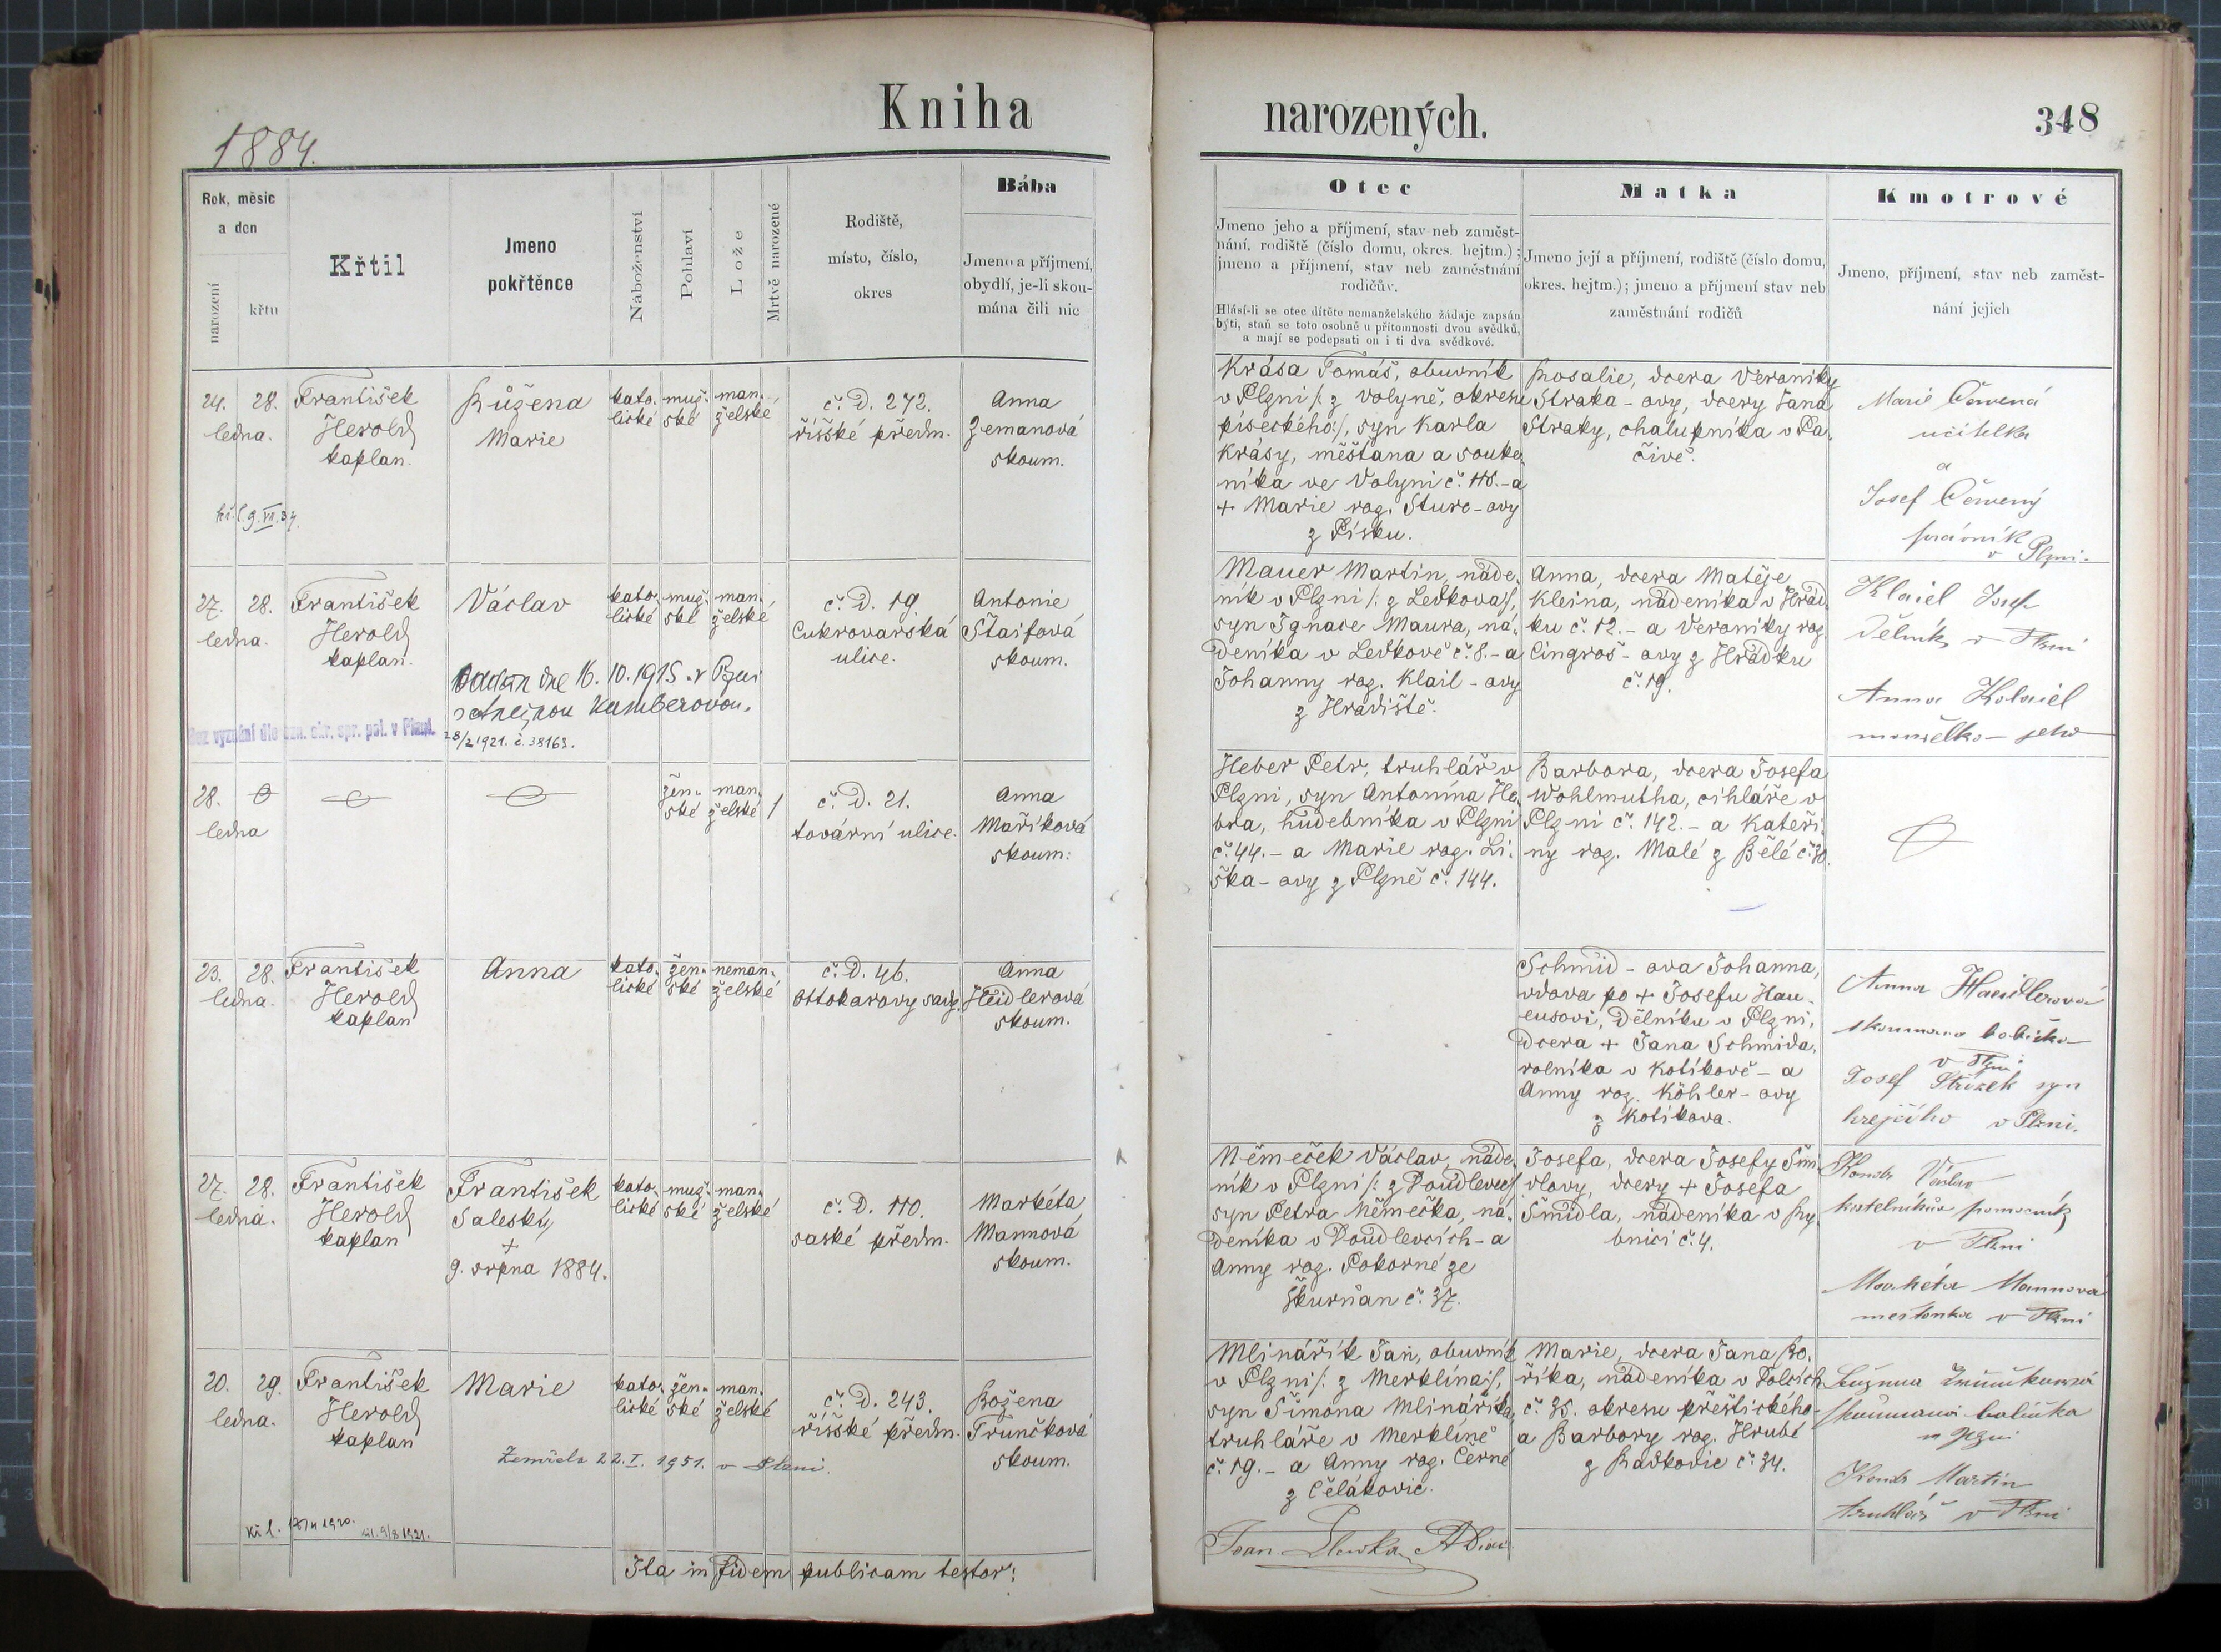 Kniha
narozených.
348
1884.
Rok, měsíc
a den
narození
křtu
Křtil
Jmeno
pokřtěnce
Náboženství
Pohlaví
Lože
Mrtvě narozené
Rodiště,
místo, číslo,
okres
Bába
Jmeno a příjmení,
obydlí, je-li skou-
mána čili nic
Otec
Jmeno jeho a příjmení, stav neb zaměst-
nání, rodiště (číslo domu, okres. hejtm.);
jmeno a příjmení, stav neb zaměstnání
rodičův.
Hlásí-li se otec dítěte nemanželského žádaje zapsán
býti, staň se toto osobně u přítomnosti dvou svědků,
a mají se podepsati on i ti dva svědkové.
Matka
Jmeno její a příjmení, rodiště (číslo domu,
okres. hejtm.); jmeno a příjmení stav neb
zaměstnání rodičů
Kmotrové
Jmeno, příjmení, stav neb zaměst-
nání jejich
24. 28.
ledna.
František
Herold
kaplan.
Růžena
Marie
kato-
lické
muž-
ské
man-
želské
č. D. 272.
říšské předm.
Anna
Zemanová
skoum.
Krása Tomáš, obuvník
v Plzni /: z Volyně, okresu
píseckého:/, syn Karla
Krásy, měšťana a souke-
níka ve Volyni č. 118. - a
+ Marie roz. Sturc-ovy
z Písku.
Rosalie, dcera Veroniky
Straka-ovy, dcery Jana
Straky, chalupníka v Pa-
čivě.
Marie Červená
učitelka
a
Josef Červený
právník
v Plzni.
27. 28.
ledna.
František
Herold
kaplan.
Václav
kato-
lické
muž-
ské
man-
želské
č. D. 19.
Cukrovarská
ulice.
Antonie
Štaifová
skoum.
Oddán dne 16. 10. 1915 v Plzni
Kamberovou.
Bez vyznání dle ozn. okr. spr. pol. v Plzni.
28/2 1921. č. 38163.
Mauer Martin, náde-
ník v Plzni /: z Ledkova:/,
syn Ignace Maura, ná-
deníka v Ledkově č. 8. - a
Johanny roz. Klail-ovy
z Hradiště.
Anna, dcera Matěje
Kleina, nádeníka v Hrád-
ku č. 12. - a Veroniky roz.
Cingroš-ovy z Hrádku
č. 19.
Klaiel Josef
Dělník v Plzni
Anna
manželka jeho
28.
ledna
žen-
ské
man-
želské
1
č. D. 21.
tovární ulice.
Anna
Maříková
skoum.
Heber Petr, truhlář v
Plzni, syn Antonína He-
bra, hudebníka v Plzni
č. 44. - a Marie roz. Li-
ška-ovy z Plzně č. 144.
Barbora, dcera Josefa
Wohlmutha, cihláře v
Plzni č. 142. - a Kateři-
ny roz. Malé z Bělé č. 30.
23. 28.
ledna.
František
Herold
kaplan
Anna
kato-
lické
žen-
ské
neman-
želské
č. D. 46.
Ottokarovy sady.
Anna
Heidlerová
skoum.
Schmid-ova Johanna,
vdova po + Josefu Hau-
eusovi, dělníku v Plzni,
dcera + Jana Schmida,
rolníka v Kotíkově - a
Anny roz. Köhler-ovy
z Kotíkova.
Anna Haidlerová
babička
v Plzni
Josef Střízek syn
krejčího v Plzni.
27. 28.
ledna.
František
Herold
kaplan
František
Saleský
+
9. srpna 1884.
kato-
lické
muž-
ské
man-
želské
č. D. 110.
saské předm.
Markéta
Mannová
skoum.
Němeček Václav, náde-
ník v Plzni /: z Doudlevec:/
syn Petra Němečka, ná-
deníka v Doudlevcích - a
Anny roz. Pokorné ze
Škurňan č. 37.
Josefa, dcera Josefy Šmi-
dlovy, dcery + Josefa
Šmidla, nádeníka v Ry-
bnici č. 4.
Václav
kostelníkův pomocník
v Plzni
Markéta Mannová
mestonka v Plzni
20. 29.
ledna.
František
Herold
kaplan
Marie
kato-
lické
žen-
ské
man-
želské
č. D. 243.
říšské předm.
Božena
Trunčková
skoum.
Zemřela 22. I. 1951. v Plzni.
Mlinářík Jan, obuvník
v Plzni /: z Merklína:/,
syn Šimona Mlináříka,
truhláře v Merklíně
č. 19. - a Anny roz. Černé
z Čelákovic.
Marie, dcera Jana Bo-
říka, nádeníka v Dolcích
č. 35. okresu přeštického -
a Barbory roz. Hrubé
z Radkovic č. 34.
babička
v Plzni
Martin
truhlář v Plzni
Ita in fidem publicam testor: